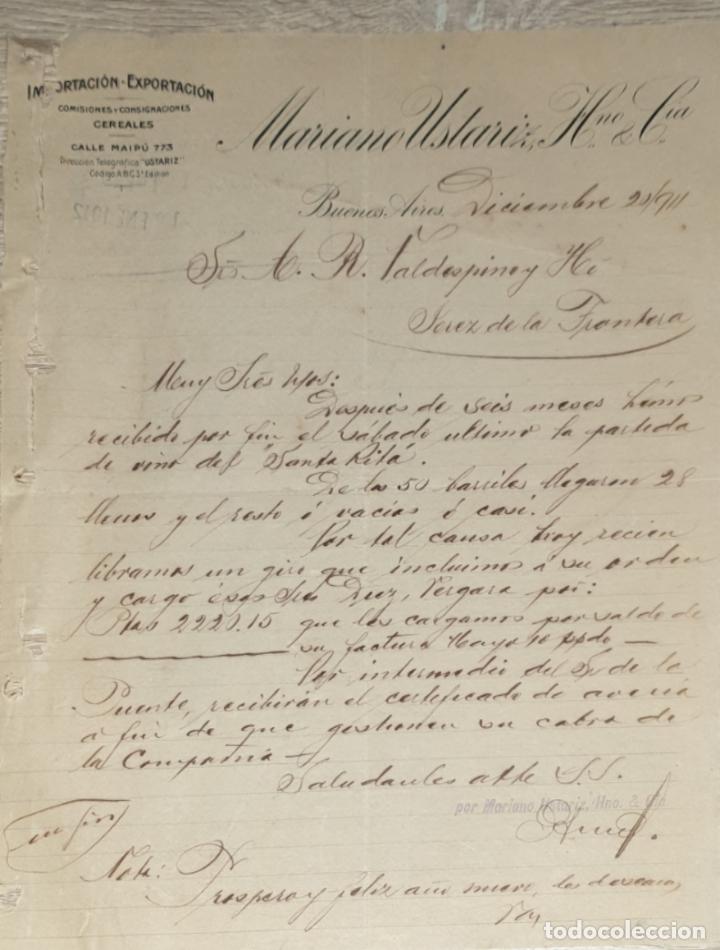 IMPORTACIÓN-EXPORTACIÓN
COMISIONES Y CONSIGNACIONES
CEREALES
CALLE MAIPÚ 773
Dirección Telegráfica "USTARIZ"
Código A.B.C. 5ª Edición
Mariano Ustariz, Hno & Cia
ENE 1912
Buenos Aires, Diciembre 20/911
Srs. A. R. Valdespino y Hº
Jerez de la Frontera
Muy Srês
Después de seis meses hémos
recibido por fin el sábado ultimo la partida
de vino del "Santa Rita".
De los 50 barriles llegaron 28
llenos y el resto ó vacios ó casi.
Por tal causa hoy recien
libramos un giro que incluimos á su orden
y cargo ésos Srês Diez, Vergara por:
Ptas 2220.15 que les cargamos por saldo de
su factura Mayo 10 ppdo —
Por intermedio del Sr de la
Puente, recibirán el certificado de averia
á fin de que gestionen su cobro de
la Compañia —
Saludanles atte S.S.
por Mariano Ustariz, Hno. & Cia
Nota: Prospero y feliz año nuevo, les desean,
todocoleccion